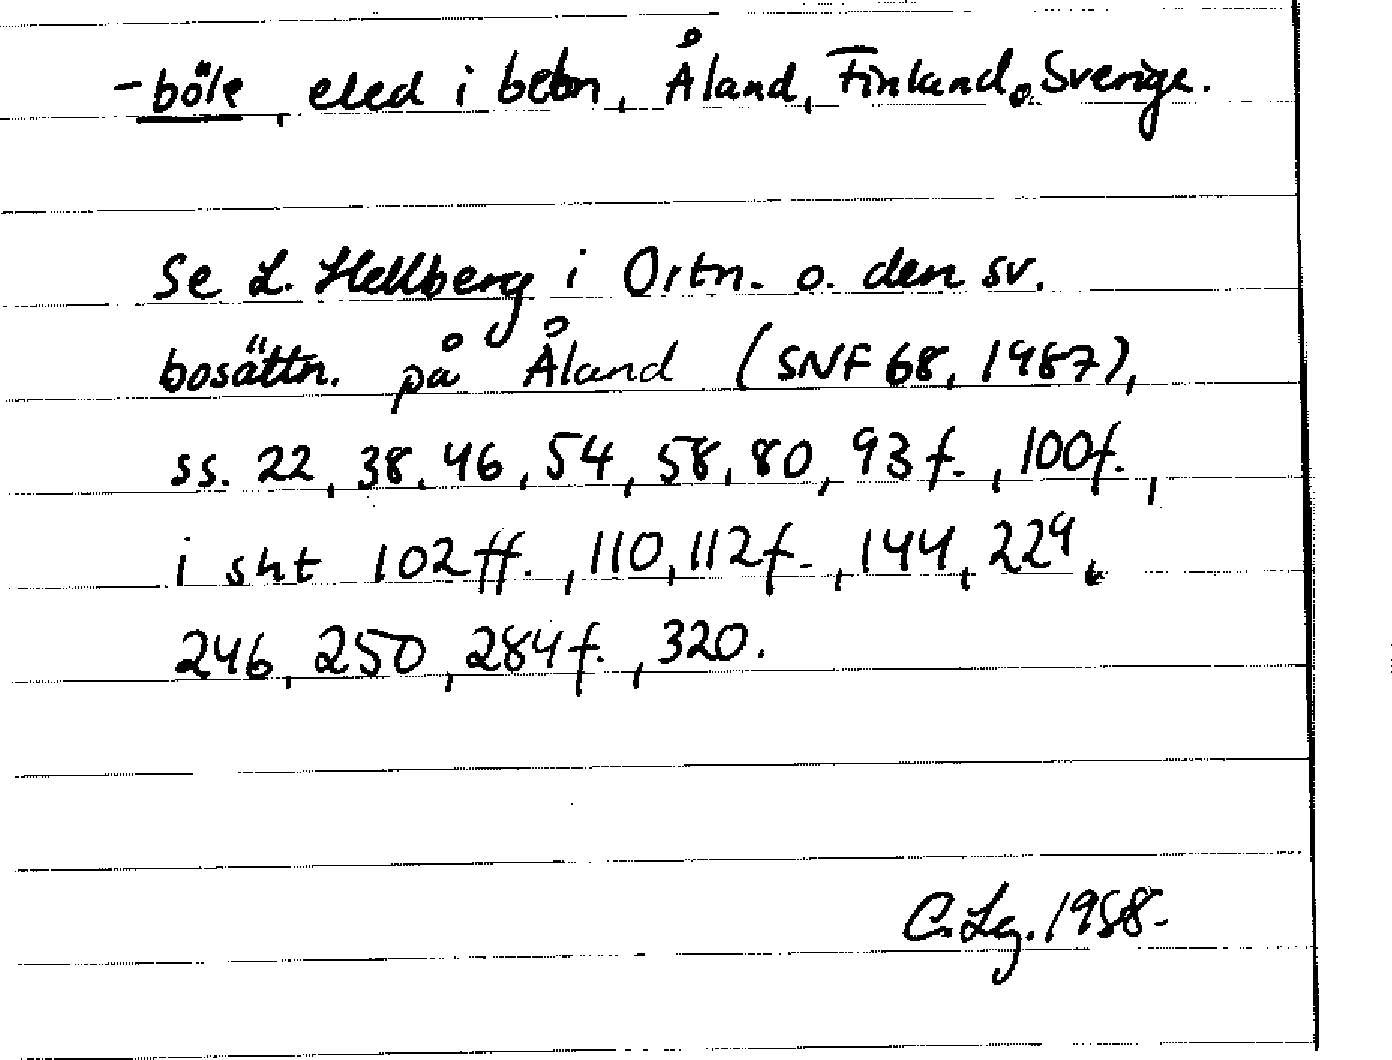 -böle, eled i bebn, Åland, Finland o. Sverige.
Se L. Hellberg i Ortn. o. den sv.
bosättn. på Åland (SNF 68, 1987),
ss. 22, 38, 46, 54, 58, 80, 93 f., 100 f.,
i sht 102 ff., 110, 112 f., 144, 229,
246, 250, 284 f., 320.
C. Lg. 1988.